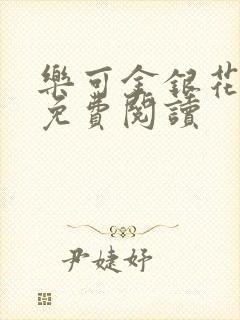 樂可金銀花
免費閱讀
尹婕妤